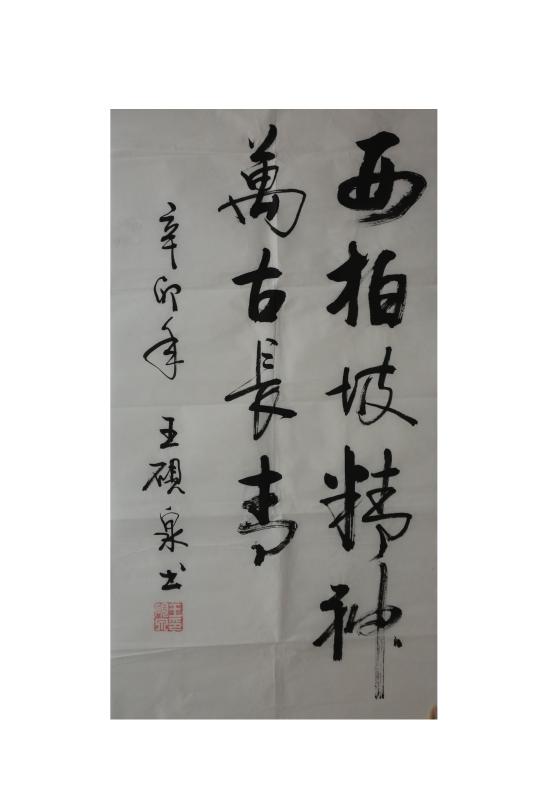 西柏坡精神
萬古長青
辛卯年 王硯泉书